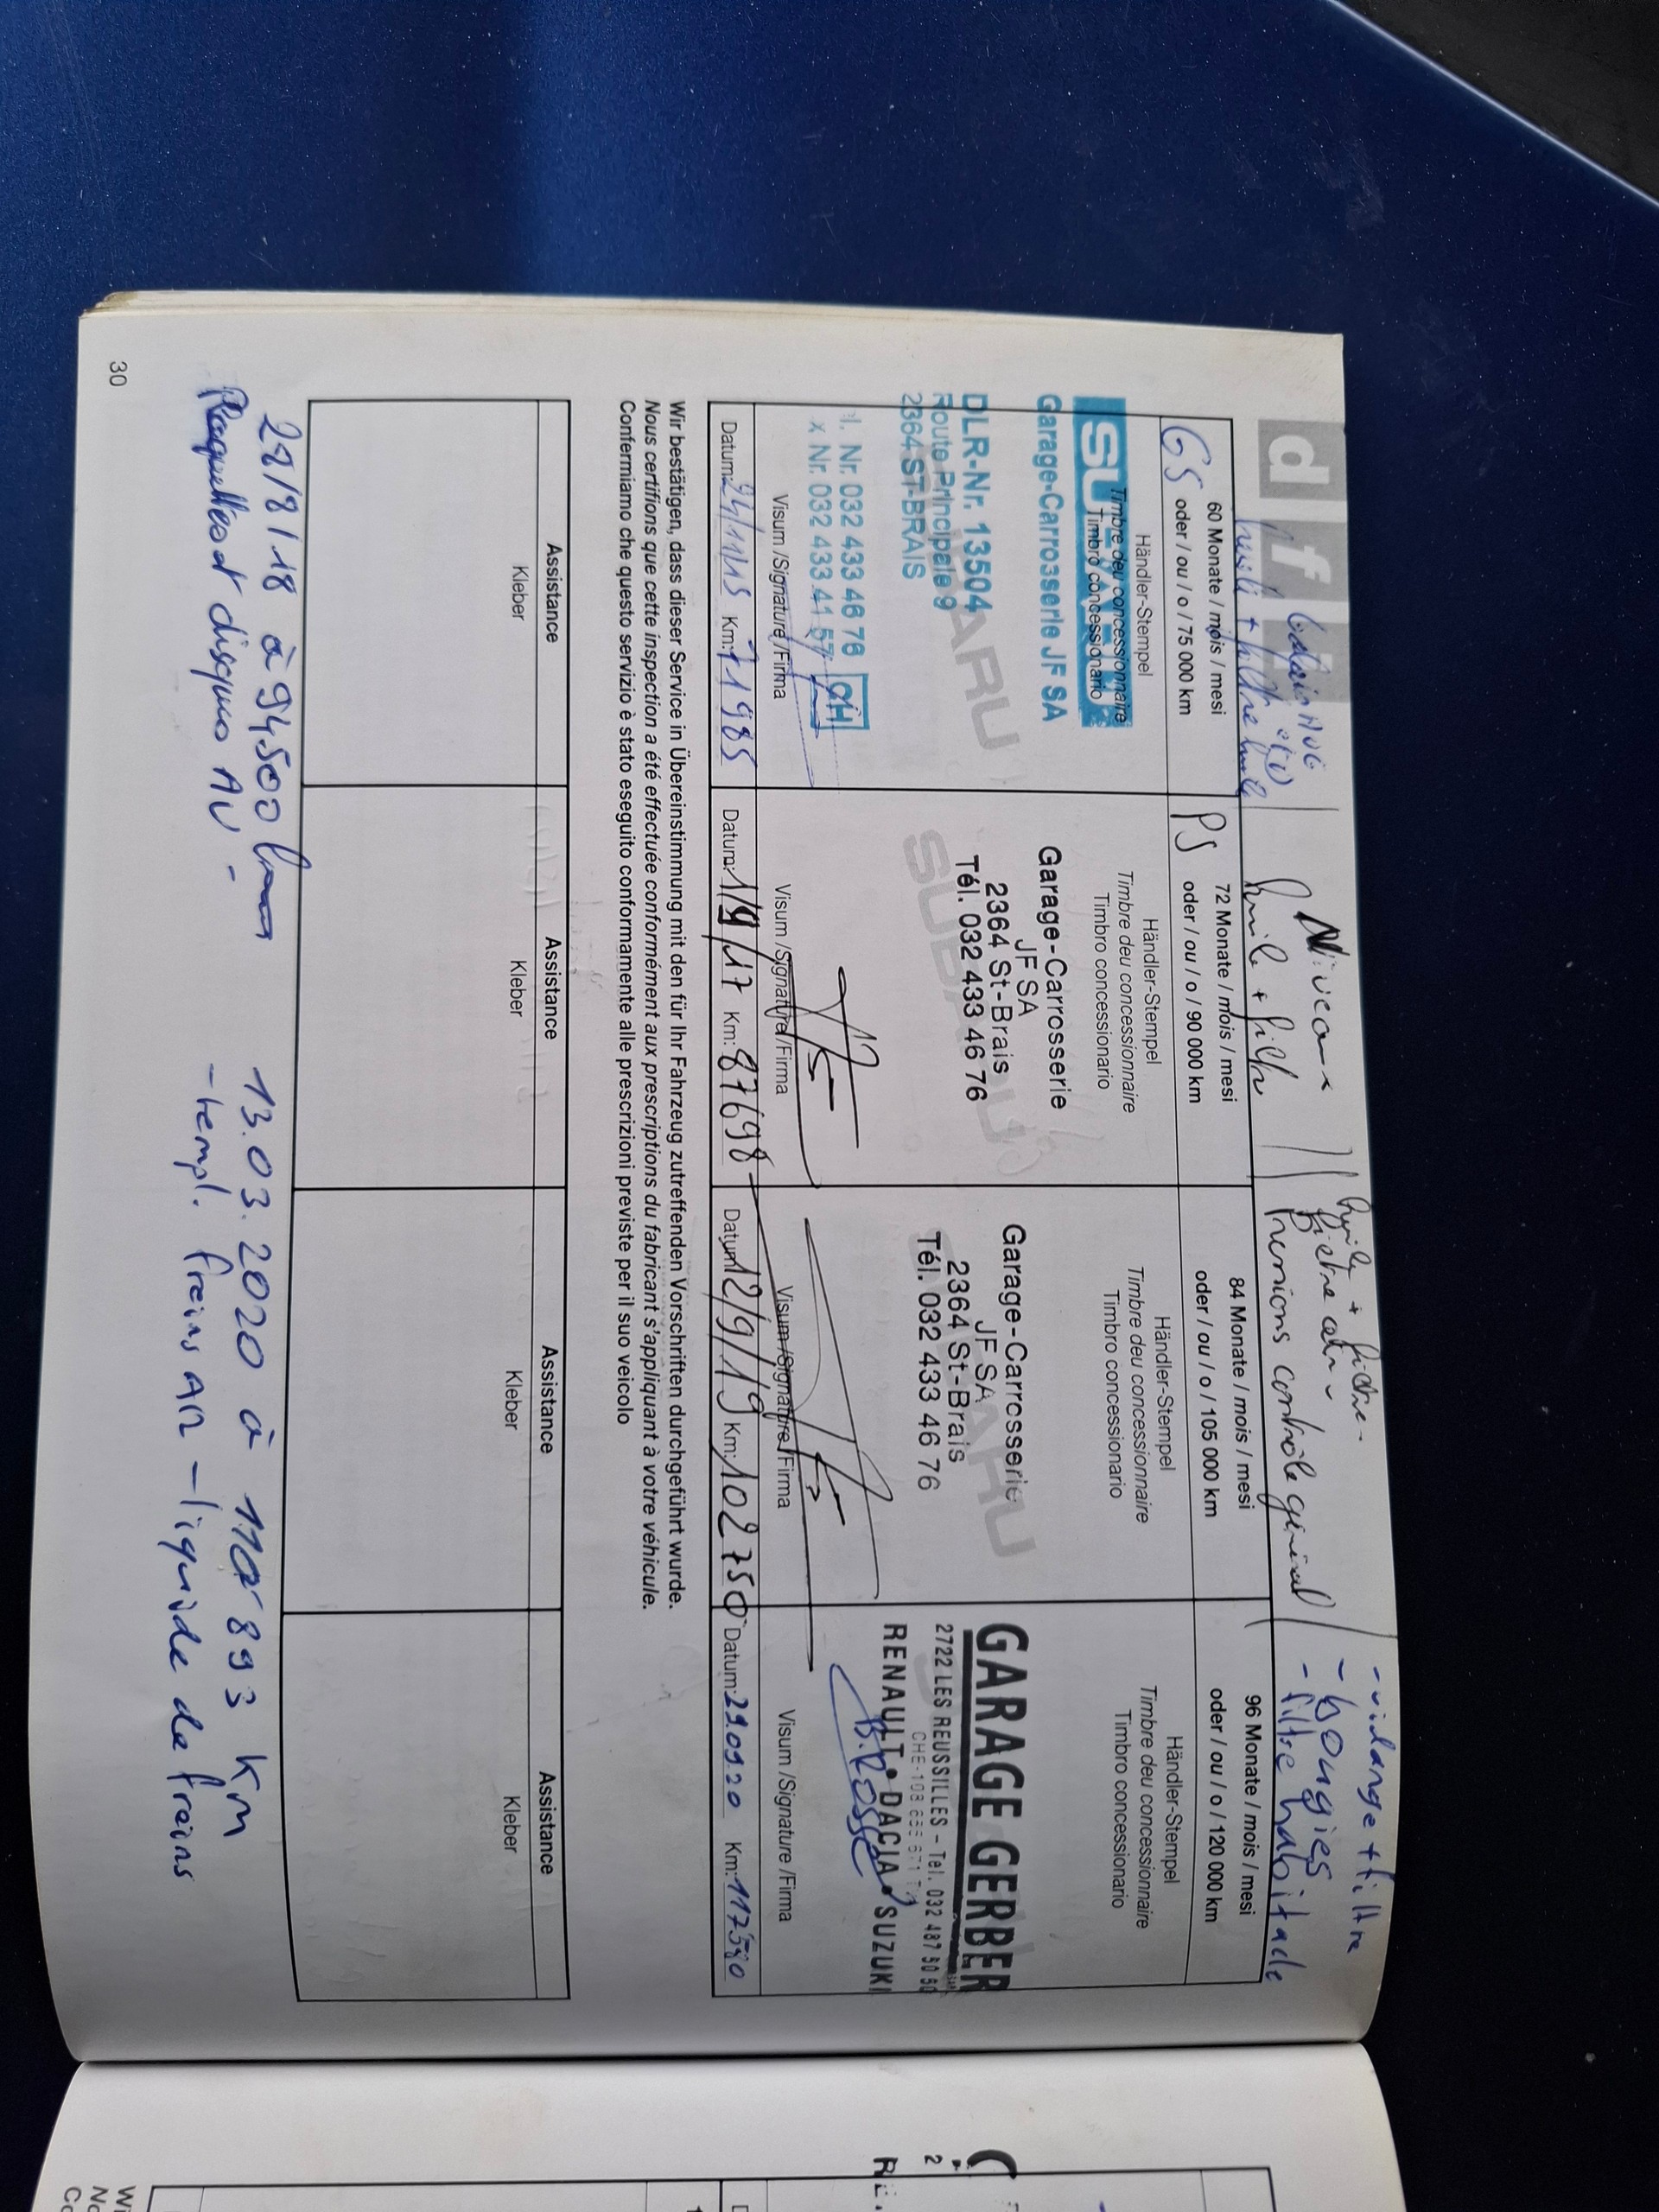 d f i
huile + filtre huile
Niveaux
huile + filtre
huile + filtre
Filtre
contrôle général
- vidange + filtre
- bougies
- filtre habitacle
GS
60 Monate / mois / mesi
oder / ou / o / 75 000 km
Händler-Stempel
Timbre deu concessionnaire
Timbro concessionario
SU
Garage-Carrosserie JF SA
DLR-Nr. 13504
Route Principale 9
2364 ST-BRAIS
l. Nr. 032 433 46 76
x Nr. 032 433 41 57
SUBARU
Visum /Signature /Firma
Datum: Km: 71985
PS
72 Monate / mois / mesi
oder / ou / o / 90 000 km
Händler-Stempel
Timbre deu concessionnaire
Timbro concessionario
Garage-Carrosserie
JF SA
2364 St-Brais
Tél. 032 433 46 76
SUBARU
Visum /Signature /Firma
Datum: 1/9/17 Km: 87698
84 Monate / mois / mesi
oder / ou / o / 105 000 km
Händler-Stempel
Timbre deu concessionnaire
Timbro concessionario
Garage-Carrosserie
JF SA
2364 St-Brais
Tél. 032 433 46 76
Visum /Signature /Firma
Datum 12/9/19 Km: 102750
96 Monate / mois / mesi
oder / ou / o / 120 000 km
Händler-Stempel
Timbre deu concessionnaire
Timbro concessionario
GARAGE GERBER
2722 LES REUSSILLES - Tél. 032 487 50 50
RENAULT • DACIA • SUZUKI
Visum /Signature /Firma
Datum: 29.09.20 Km: 117580
Wir bestätigen, dass dieser Service in Übereinstimmung mit den für Ihr Fahrzeug zutreffenden Vorschriften durchgeführt wurde.
Nous certifions que cette inspection a été effectuée conformément aux prescriptions du fabricant s'appliquant à votre véhicule.
Confermiamo che questo servizio è stato eseguito conformamente alle prescrizioni previste per il suo veicolo
Assistance
Kleber
Assistance
Kleber
Assistance
Kleber
Assistance
Kleber
28/8/18 à 94500 km
Plaquettes et disques AV -
13.03.2020 à 110 893 km
- rempl. freins AR - liquide de freins
30